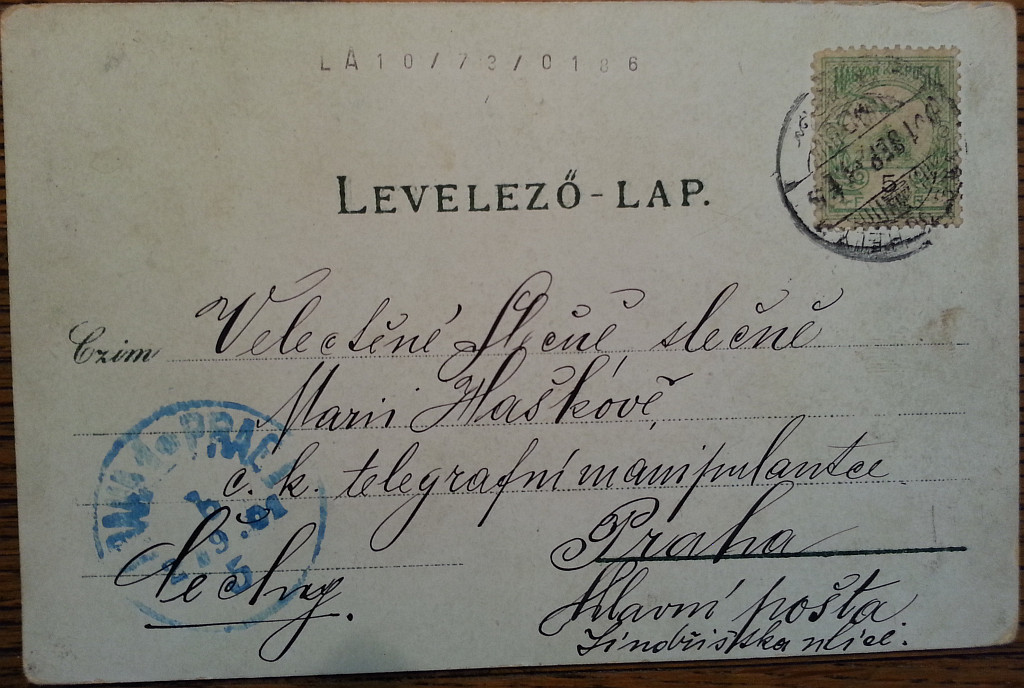 LA10/73/0186
MAGYAR KIR. POSTA
5
901 SEP
LEVELEZŐ-LAP.
Czim
Velectěné Slečně, slečně
Marii Haškově,
c. k. telegrafní manipulantce
Praha
Čechy.
Hlavní pošta
Jindřišská ulice.
PRAG